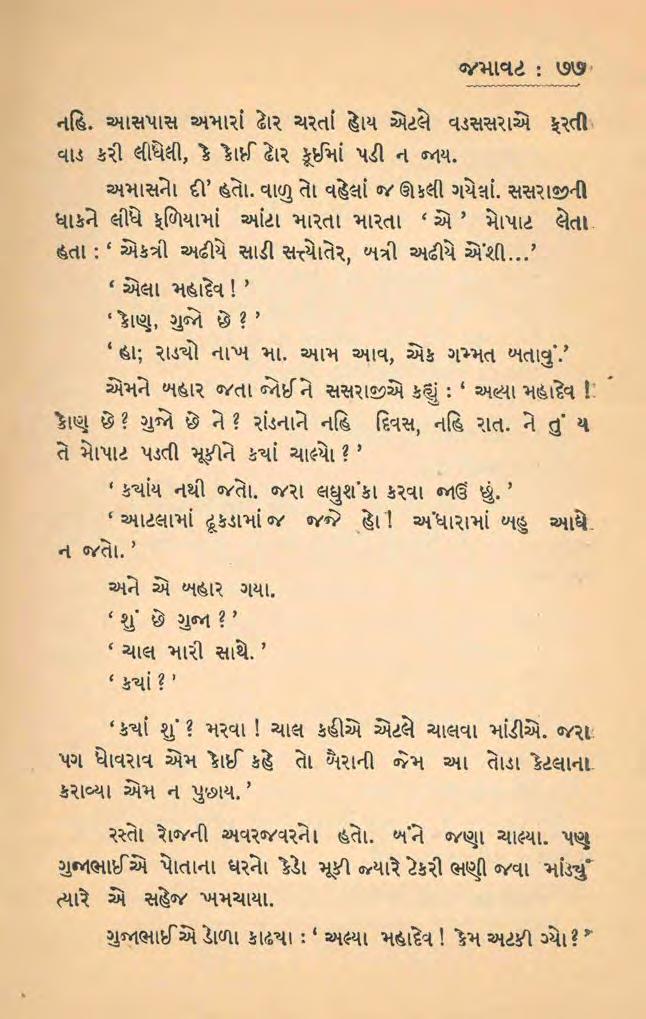 જમાવટ : ૭૭
નહિ. આસપાસ અમારાં ઢોર ચરતાં હોય એટલે વડસસરાએ ફરતી
વાડ કરી લીધેલી, કે કોઈ ઢોર કૂઈમાં પડી ન જાય.
અમાસનો દી’ હતો. વાળુ તો વહેલાં જ ઊકલી ગયેલાં. સસરાજીની
ધાકને લીધે ફળિયામાં આંટા મારતા મારતા ‘ એ ’ મોપાટ લેતા
હતા : ‘ એકત્રી અઢીયે સાડી સત્ત્યોતેર, બત્રી અઢીયે એંશી...’
‘ એલા મહાદેવ ! ’
‘ કોણ, ગુજો છે ? ’
‘ હા; રાડ્યો નાખ મા. આમ આવ, એક ગમ્મત બતાવું.’
એમને બહાર જતા જોઈને સસરાજીએ કહ્યું : ‘ અલ્યા મહાદેવ !
કોણ છે ? ગુજો છે ને ? રાંડનાને નહિ દિવસ, નહિ રાત. ને તું ય
તે મોપાટ પડતી મૂકીને ક્યાં ચાલ્યો ? ’
‘ ક્યાંય નથી જતો. જરા લઘુશંકા કરવા જાઉં છું. ’
‘ આટલામાં ઢૂકડામાં જ જજે હો ! અંધારામાં બહુ આઘે
ન જતો. ’
અને એ બહાર ગયા.
‘ શું છે ગુજા ? ’
‘ ચાલ મારી સાથે. ’
‘ ક્યાં ? ’
‘ ક્યાં શું ? મરવા ! ચાલ કહીએ એટલે ચાલવા માંડીએ. જરા
પગ ધોવરાવ એમ કોઈ કહે તો બૈરાની જેમ આ તોડા કેટલાના
કરાવ્યા એમ ન પુછાય. ’
રસ્તો રોજની અવરજવરનો હતો. બંને જણા ચાલ્યા. પણ
ગુજાભાઈએ પોતાના ઘરનો કેડો મૂકી જ્યારે ટેકરી ભણી જવા માંડ્યું
ત્યારે એ સહેજ ખમચાયા.
ગુજાભાઈએ ડોળા કાઢ્યા : ‘ અલ્યા મહાદેવ ! કેમ અટકી ગ્યો ? ’